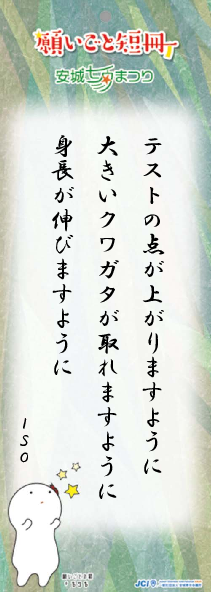 願いごと短冊
安城七夕まつり
テストの点が上がりますように
大きいクワガタが取れますように
身長が伸びますように
ISO
JCI